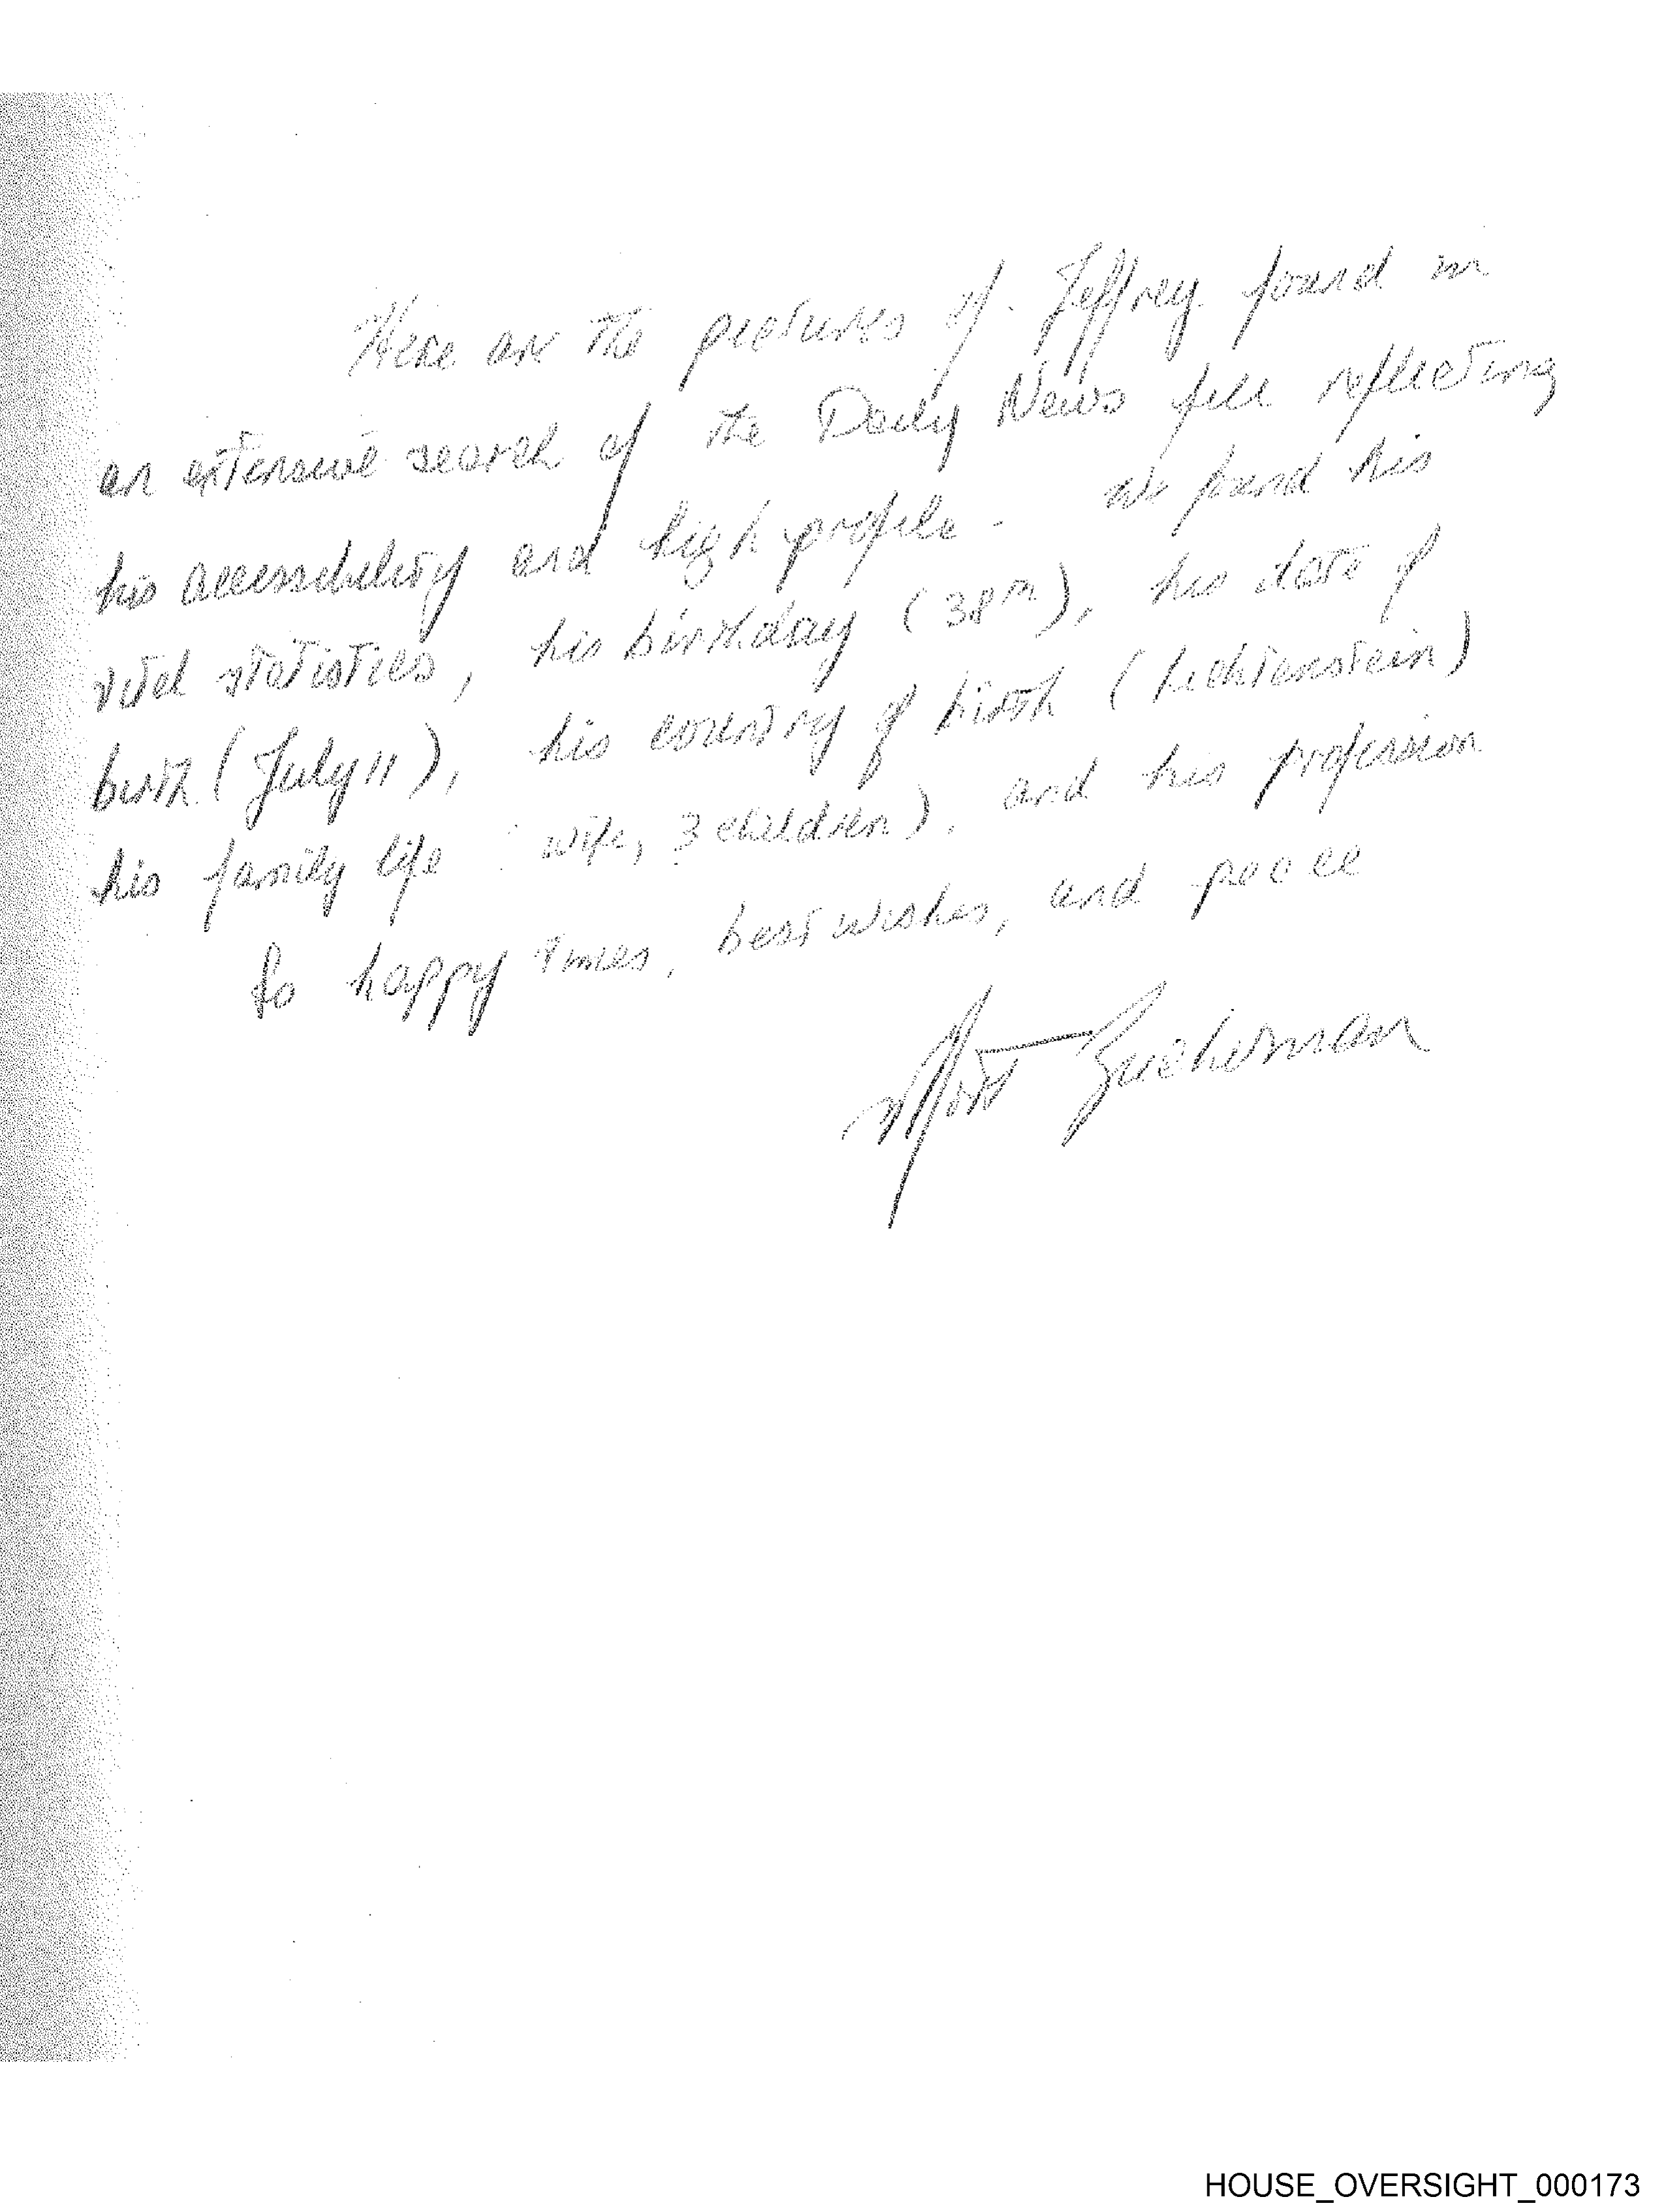 Here are the pictures of Jeffrey found in
an extensive search of the Daily News file reflecting
his accessibility and high profile - We found his
vital statistics, his birthday (38th), his date of
birth (July 11), his country of birth (Lichtenstein)
his family life : wife, 3 children), and his profession
To happy times, best wishes, and peace
Mort Zuckerman
HOUSE_OVERSIGHT_000173